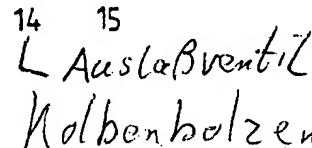 14 15
L Auslaßventil
Kolbenbolzen